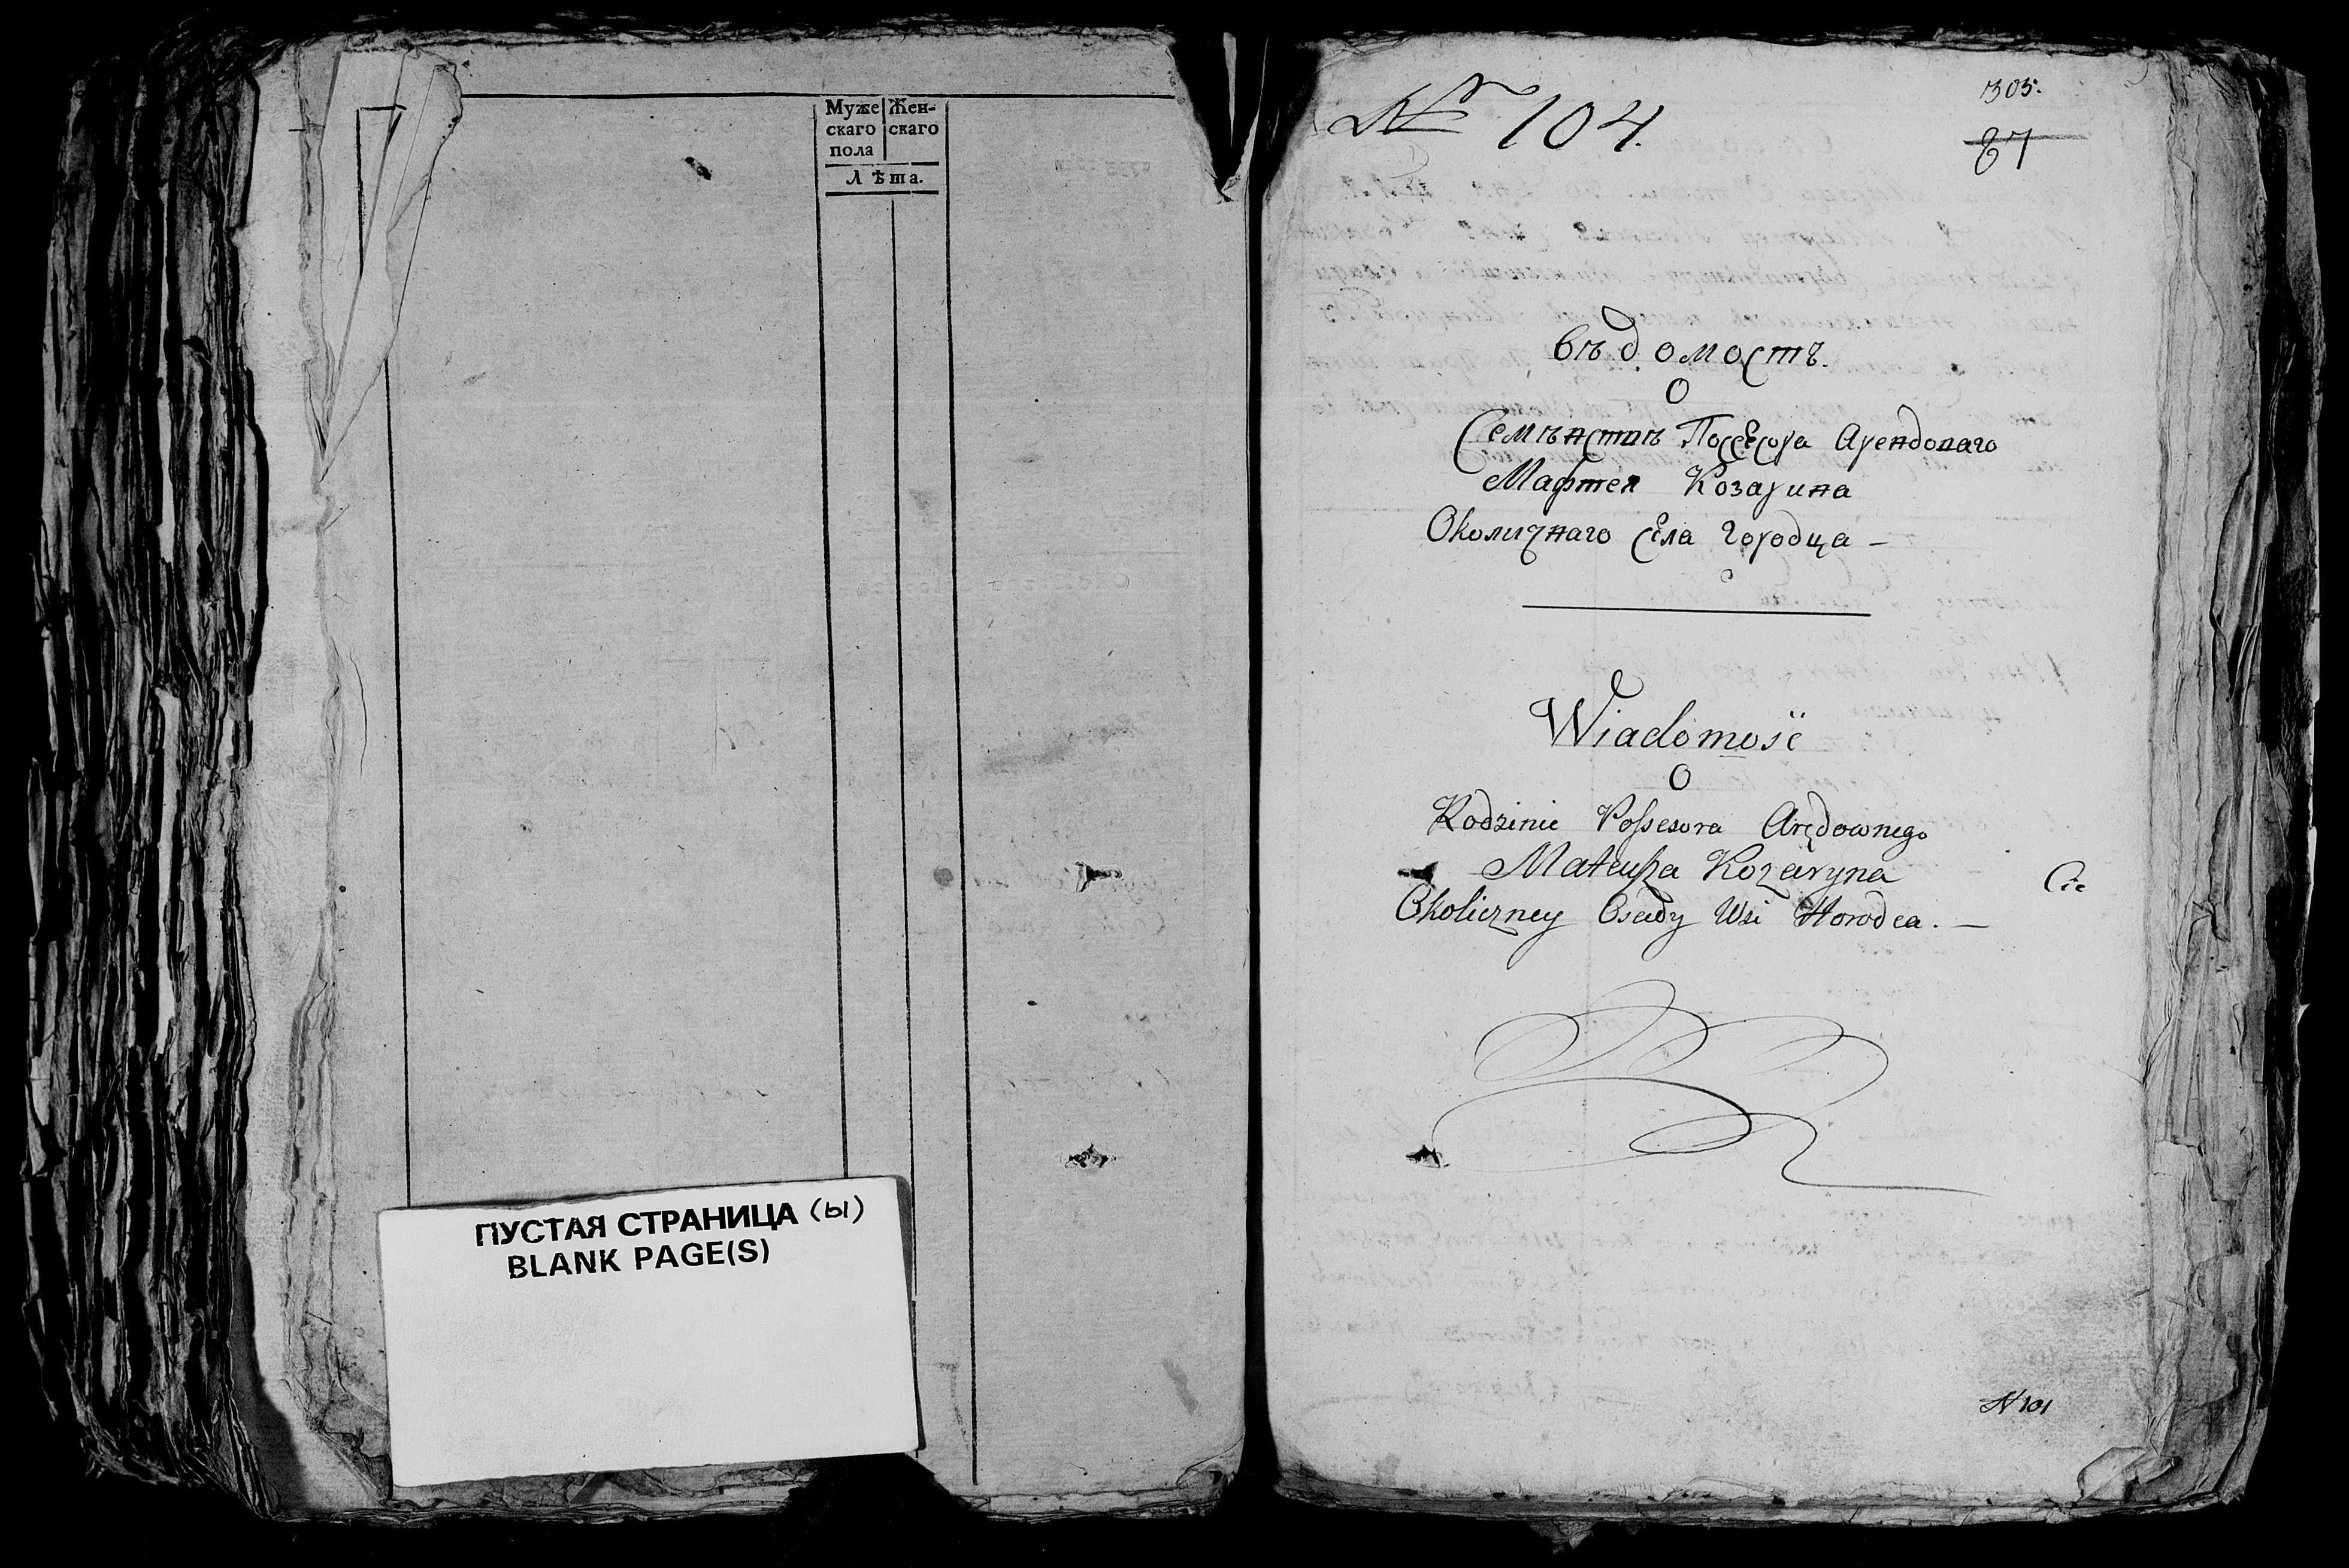 Муже Жен-
скаго скаго
пола
Лѣта.
ПУСТАЯ СТРАНИЦА (ы)
BLANK PAGE(S)
№ 104.
305.
87
Вѣдомость.
О
Семѣйствѣ Поссесора Арендоваго
Матфея Козарина
Околичнаго Села Городца —
Wiadomość
O
Rodzinie Possesora Arędownego
Mateusza Kozaryna
Okoliczney Osady Wsi Horodca. —
N 101